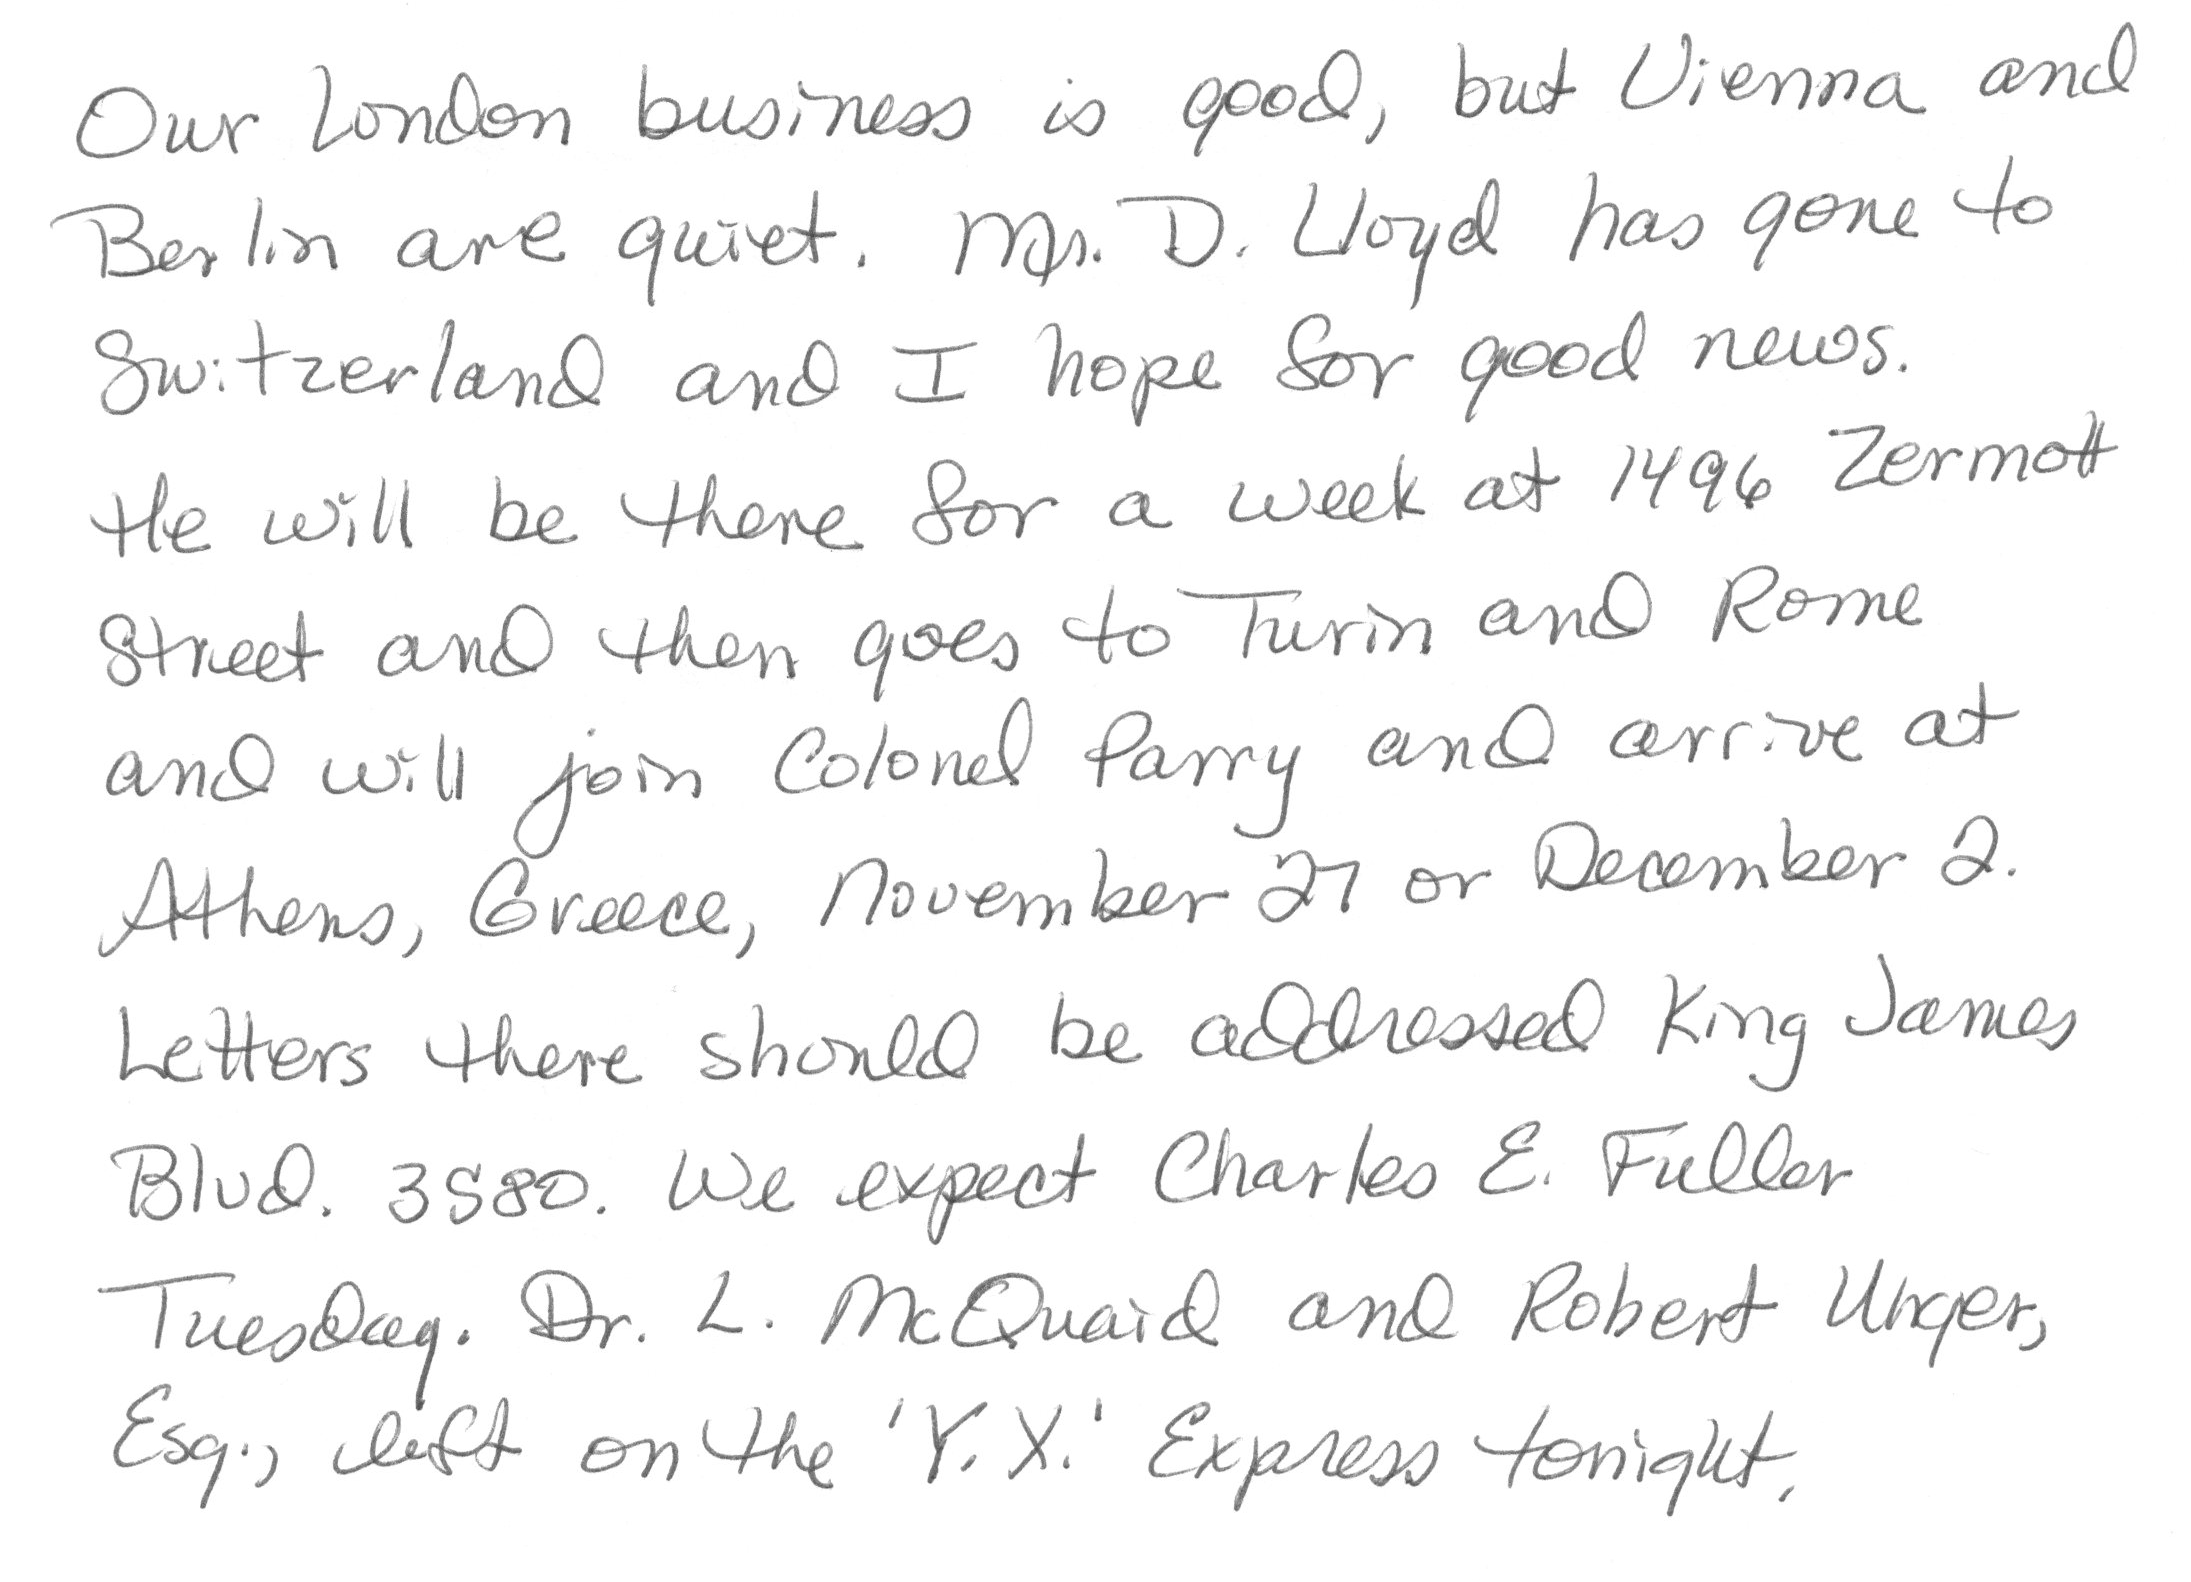 Our London business is good, but Vienna and
Berlin are quiet. Mr. D. Lloyd has gone to
Switzerland and I hope for good news.
He will be there for a week at 1496 Zermott
Street and then goes to Turin and Rome
and will join Colonel Parry and arrive at
Athens, Greece, November 27 or December 2.
Letters there should be addressed King James
Blvd. 3580. We expect Charles E. Fuller
Tuesday. Dr. L. McQuaid and Robert Unger,
Esq., left on the 'Y.X.' Express tonight.